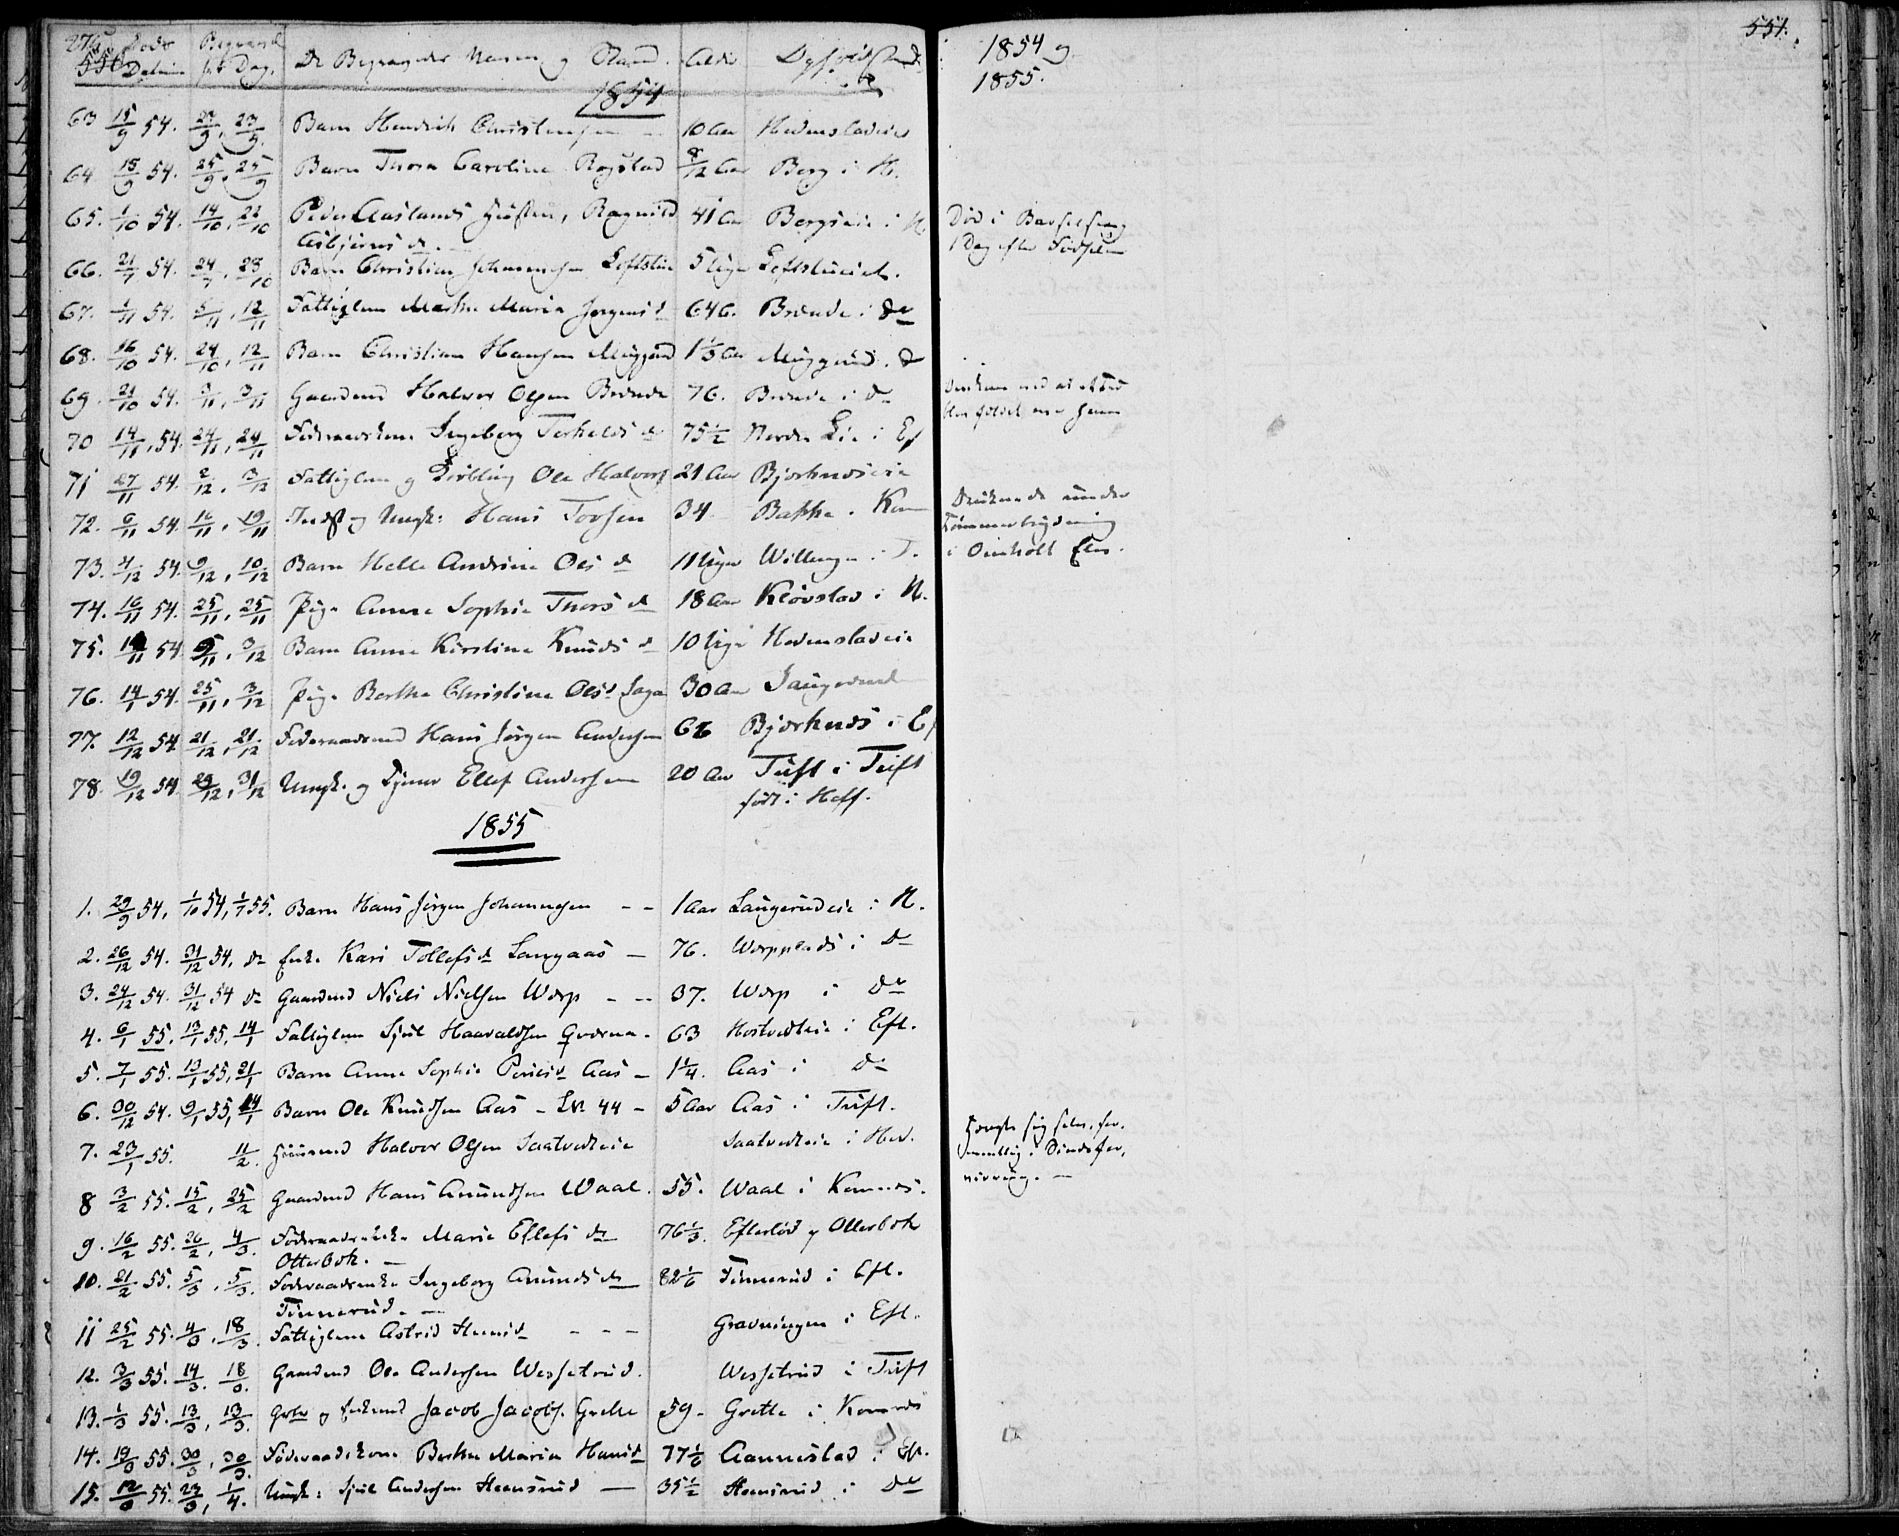 276
550. Døds Datum Begravel. De Begravedes Navn og Stand. Alder Opholdssted
1854
63 15/9 54. 23/9, 23/9 Barn Hendrik Christensen 10 Aar Hedenstadeie
64 15/9 54. 25/9, 25/9 Barn Thora Caroline Rogstad 8/12 Aar Berg i H.
65. 1/10 54. 14/10, 22/10 Peder Aaslands Hustru, Ragnild 41 Aar Bergseie i H
Asbjørns d.
66. 21/9 54. 24/9, 23/10 Barn Christian Johannesen Loftstue 5 Uger Loftstueiet.
67. 1/11 54. 5/11, 12/11 Fattiglem Marthe Maria Jørgensd 64 Brende i do
68. 16/10 54. 24/10, 12/11 Barn Christian Hansen Muggerud 1 1/3 Aar Muggerud. do
69. 21/10 54. 3/11, 3/11 Gaardmd Halvor Olsen Brende 76. Brende i do
70 14/11, 54. 24/11, 24/11 Føderaadskone Ingeborg Terkelds d 75 1/2 Nordre Lie i Ef
71 27/11 54. 2/12, 3/12 Fattiglem og Ole Halvors 21 Aar Bjørkneseie
72. 6/11 54. 16/11, 19/11 Inds og Ungk: Hans Tovsen 34 Bakke. Kom
73. 4/12 54. 9/12, 10/12 Barn Helle Andrine Ols d 11 Uger Willingen i T.
74. 16/11 54. 25/11, 25/11 Pige Anne Sophie Thors d 18 Aar Kløvstad i H.
75. 54 3/12 Barn Anne Kirstine Knuds d 10 Uger Hedenstadeie
76. 14/1 54. 25/11, 3/12 Pige Berthe Christine Olsd 30 Aar Laugerud
77. 12/12 54 21/12, 21/12 Føderaadsmd Hans Jørgen Andersen 66 Bjørknes i Ef
78. 19/12 54. 29/12, 31/12 Ungk. og Tjener Ellef Andersen 20 Aar Tuft i Tuft
født i Heff.
1855
1. 29/9 54, 1/10 54, 1/1 55. Barn Hans Jørgen Johannesen - - 1 Aar Laugerudeie i H.
2. 26/12 54. 31/12 54. do Enke Kari Tollefsd Langaas - 76. Worpplads i do
3. 24/12 54. 31/12 54 do Gaardmd Niels Nielsen Worp - - 37. Worp i do
4. 6/1 55. 13/1 55, 14/1 Fattiglem Sjul Haavaldsen Qværna. 63 Hostvedteie i Efl.
5. 7/1 55. 13/1 55, 21/1 Barn Anne Sophie Aas - 1 1/4. Aas i do
6. 30/12 54. 9/1 55, 14/1 Barn Ole Knudsen Aas - 44 - 5 Aar Aas i Tuft.
7. 23/1 55. 11/2. Huusmd Halvor Olsen Saatvedteie Saatvedteie i Hed.
8 3/2 55. 15/2, 25/2 Gaardmd Hans Amundsen Waal. 55. Waal i Komnes.
9. 16/2 55. 26/2, 4/3. Føderaadsenke Marie Ellefs d 76 1/3. Efterlød y Otterbok
Otterbok. -
10. 21/2 55. 5/3, 5/3. Føderaadsenke Ingeborg Amunds d 82 1/6 Tinnerud i Efl.
Tinnerud. -
11 25/2 55. 4/3, 18/3. Fattiglem Astrid - - - Gravningen i Efl.
12. 3/3 55. 14/3. 18/3. Gaardmd Ole Andersen Wessetrud. Wessetrud i Tuft
13. 1/3 55. 13/3, 13/3. og Enkemd Jacob Jacobs. Grette 59 - Grette i Komnes
14. 19/3 55. 30/3, 30/3. Føderaadskone Berthe Maria Hansd 77 1/6 Aannestad i Ef.
15. 12/3 55. 23/3, 1/4. Ungk: Sjul Andersen - 35 1/2 i do
1854 og
1855.
551.
Død i Barselseng
1 Dag efter Fødselen
Druknede under
Tømmerbrydning
i Elv.
Hængte sig selv, for-
mentlig i Sindsfor-
virring. -